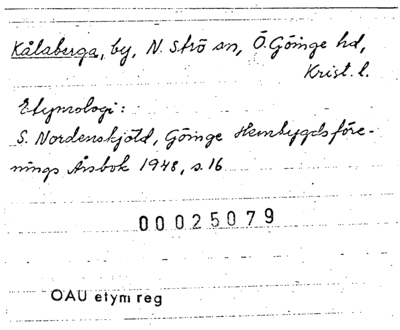 Kålaberga, by, N. Strö sn, Ö. Göinge hd,
Krist. l.
Etymologi:
S. Nordenskjöld, Göinge Hembygdsföre-
nings Årsbok 1948, s. 16
00025079
OAU etym reg